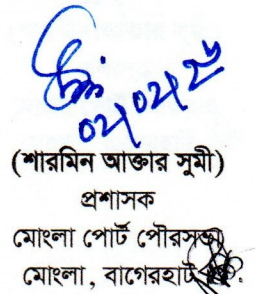 ০২/০২/২৬
(শারমিন আক্তার সুমী)
প্রশাসক
মোংলা পোর্ট পৌরসভা
মোংলা, বাগেরহাট।